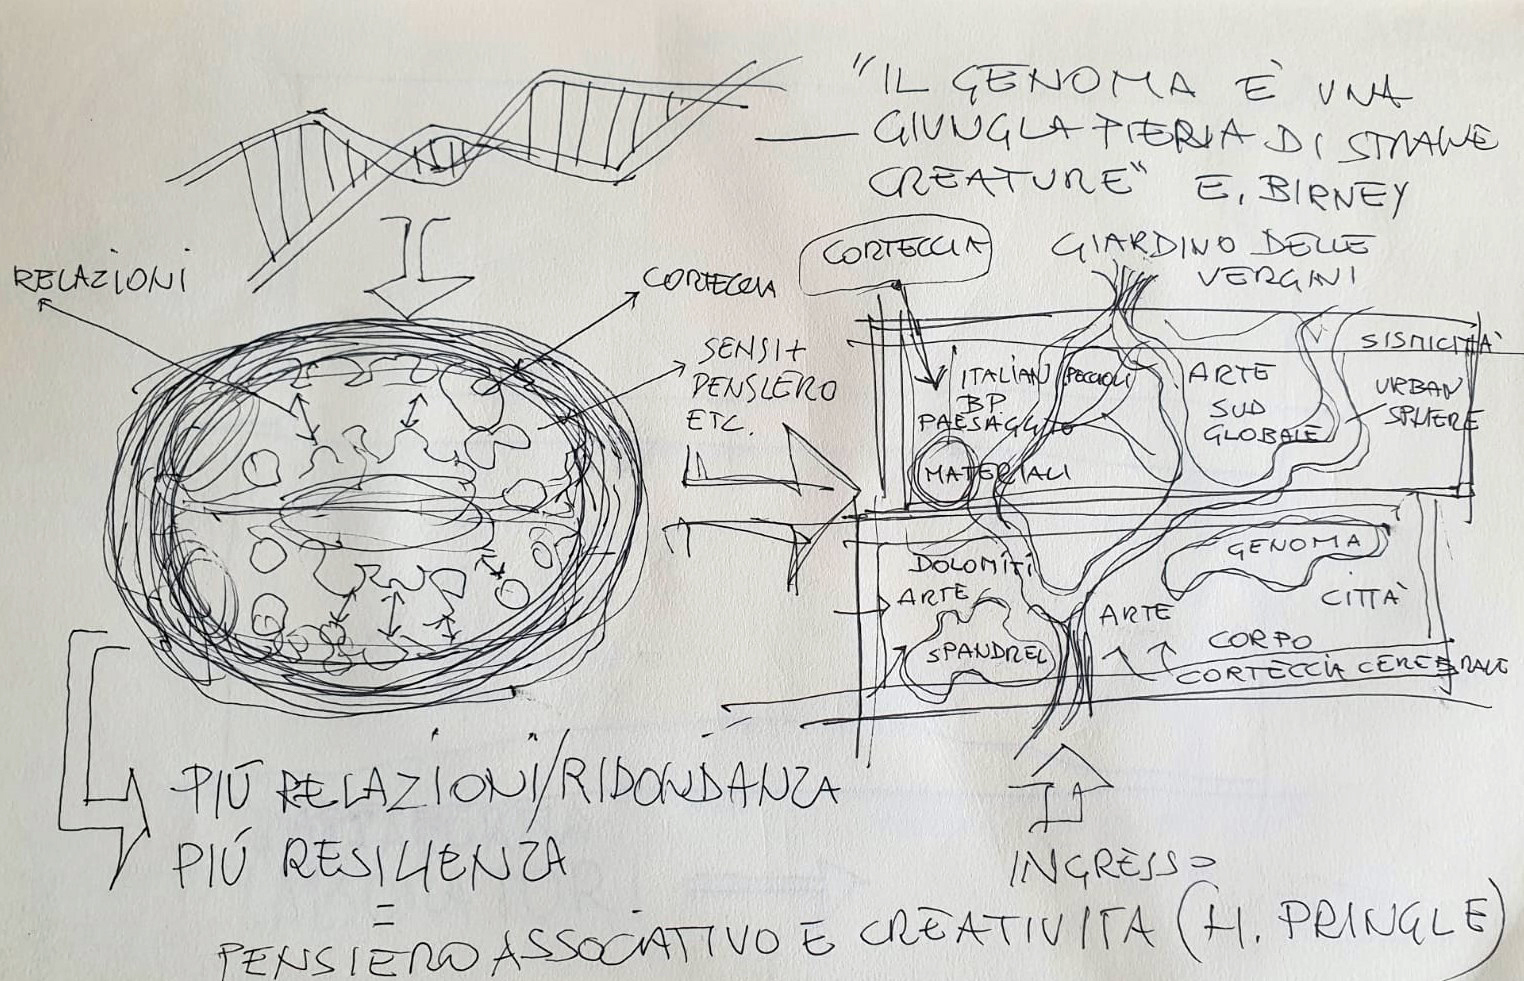 "IL GENOMA È UNA
GIUNGLA PIENA DI STRANE
CREATURE" E. BIRNEY
RELAZIONI
CORTECCIA
SENSI +
PENSIERO
ETC.
CORTECCIA
GIARDINO DELLE
VERGINI
SISMICITÀ
ITALIAN
BP
PAESAGGIO
PECCIOLI
ARTE
SUD
GLOBALE
URBAN
SPHERE
MATERIALI
DOLOMITI
ARTE
SPANDREL
GENOMA
CITTÀ
ARTE
CORPO
CORTECCIA CEREBRALE
INGRESSO
PIÚ RELAZIONI/RIDONDANZA
PIÚ RESILIENZA
=
PENSIERO ASSOCIATIVO E CREATIVITA (H. PRINGLE)